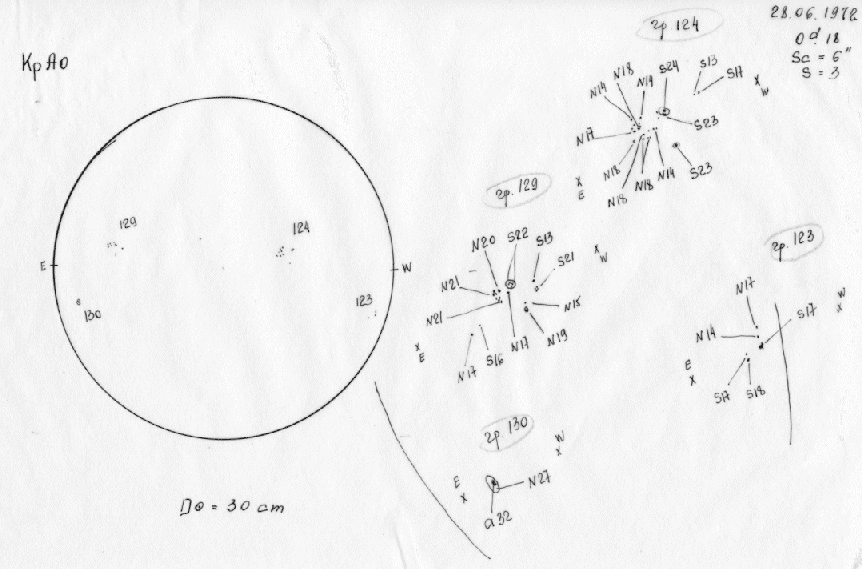 28.06.1972
КрАО
гр. 124
Sc = 6"
S = 3
N18
N19
S24
S13
S17
N14
W
N17
S23
N18
N18
N18
N14
S23
E
гр. 129
N20
S22
S13
S21
W
N21
N21
N15
N19
N17
S16
N17
E
гр. 123
N17
W
S17
N14
E
S17
S18
гр. 130
W
E
N27
a32
129
124
E
W
130
123
D⊙ = 30 cm